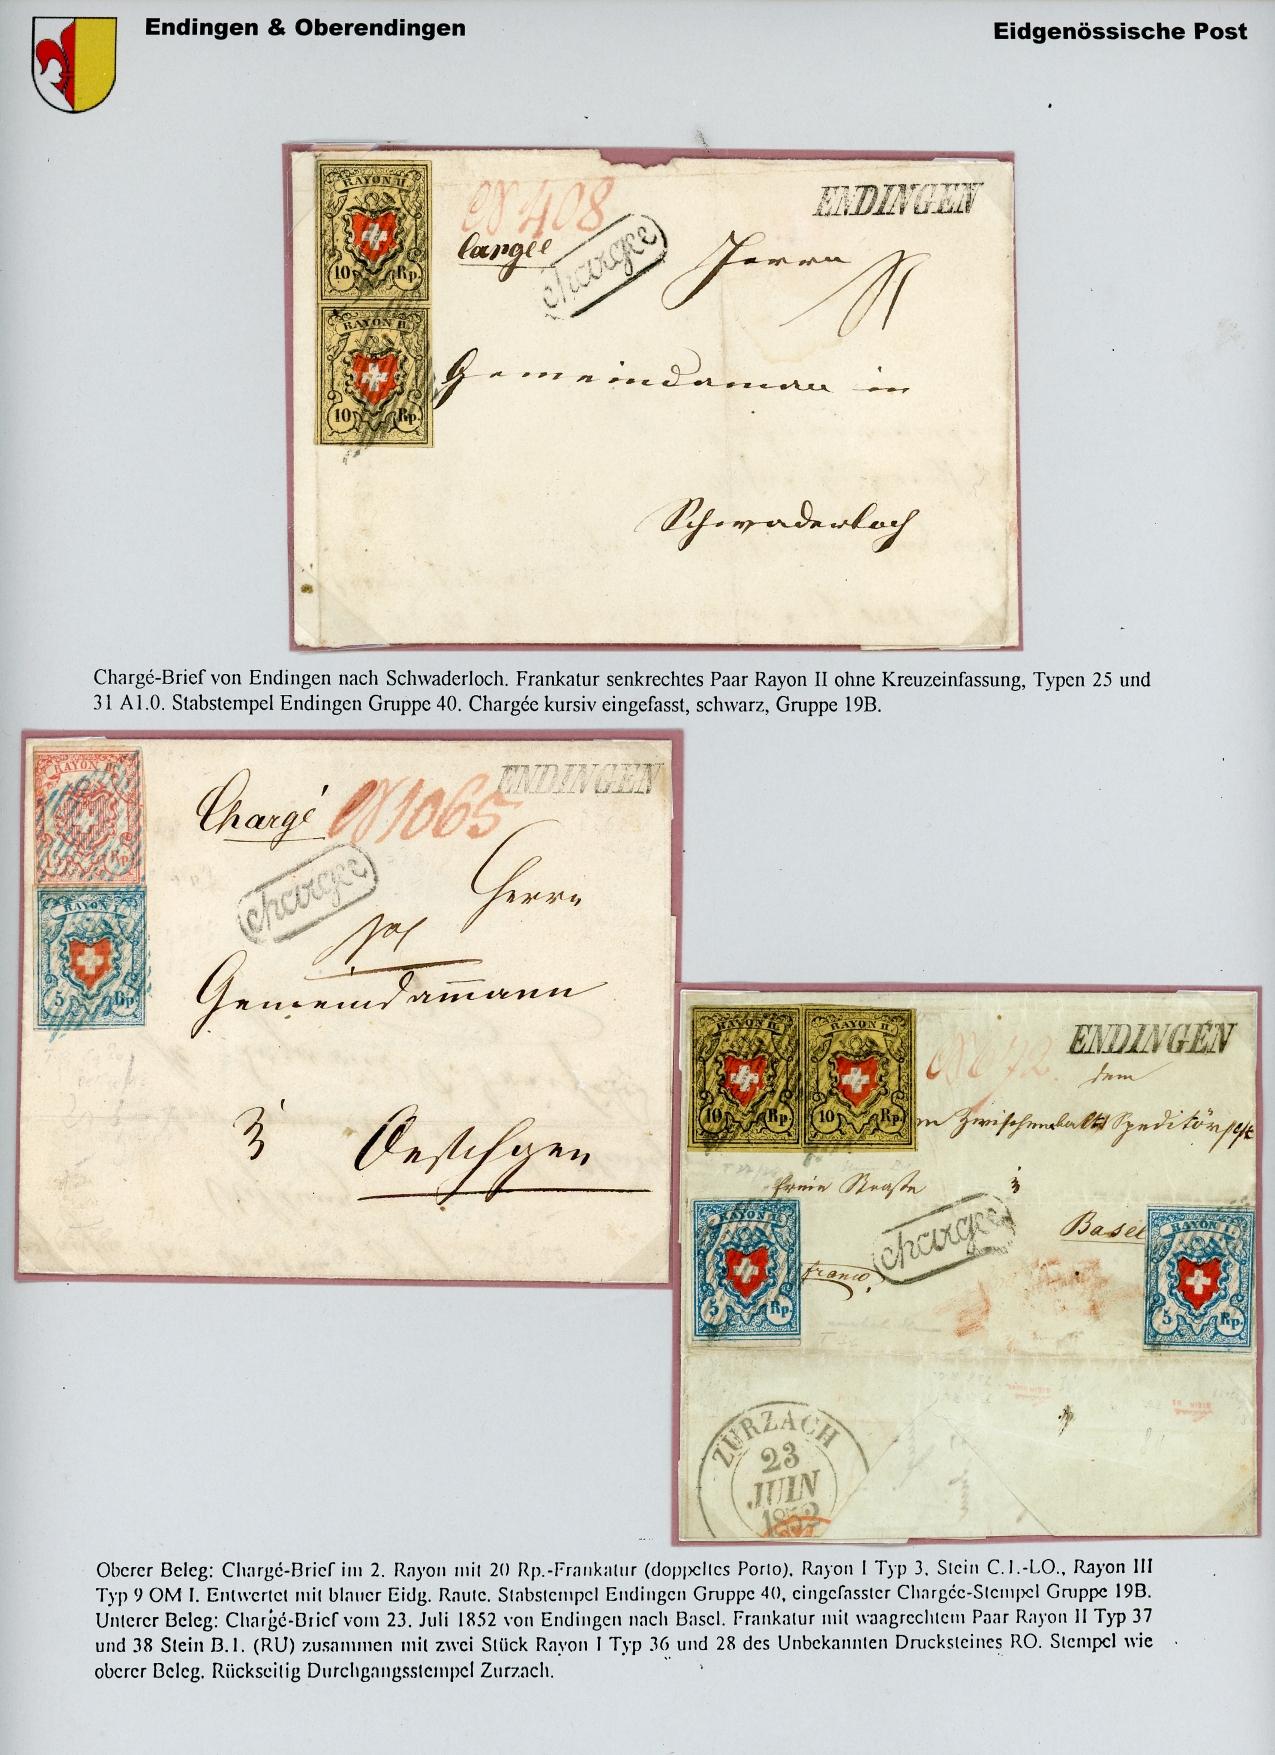 Endingen & Oberendingen
Eidgenössische Post
RAYON II.
10 Rp.
RAYON II.
10 Rp.
No 408
Cargée
chargée
ENDINGEN
Herrn
Gemeindaman in
Schwaderloch
Chargé-Brief von Endingen nach Schwaderloch. Frankatur senkrechtes Paar Rayon II ohne Kreuzeinfassung, Typen 25 und
31 A1.0. Stabstempel Endingen Gruppe 40. Chargée kursiv eingefasst, schwarz, Gruppe 19B.
RAYON III
Rp.
RAYON I.
5 Rp.
Chargé
No 1065
ENDINGEN
chargée
Herrn
Gemeindammann
Oeschgen
RAYON II.
10 Rp.
RAYON II.
10 Rp.
No 72.
ENDINGEN
dem
Zwischenbalt Speditör
freie Strasse
Basel
RAYON I.
5 Rp.
franco
chargée
RAYON I.
5 Rp.
ZURZACH
23
JUIN
1852
Oberer Beleg: Chargé-Brief im 2. Rayon mit 20 Rp.-Frankatur (doppeltes Porto), Rayon I Typ 3, Stein C.1.-LO., Rayon III
Typ 9 OM I. Entwertet mit blauer Eidg. Raute. Stabstempel Endingen Gruppe 40, eingefasster Chargée-Stempel Gruppe 19B.
Unterer Beleg: Chargé-Brief vom 23. Juli 1852 von Endingen nach Basel. Frankatur mit waagrechtem Paar Rayon II Typ 37
und 38 Stein B.1. (RU) zusammen mit zwei Stück Rayon I Typ 36 und 28 des Unbekannten Drucksteines RO. Stempel wie
oberer Beleg. Rückseitig Durchgangsstempel Zurzach.